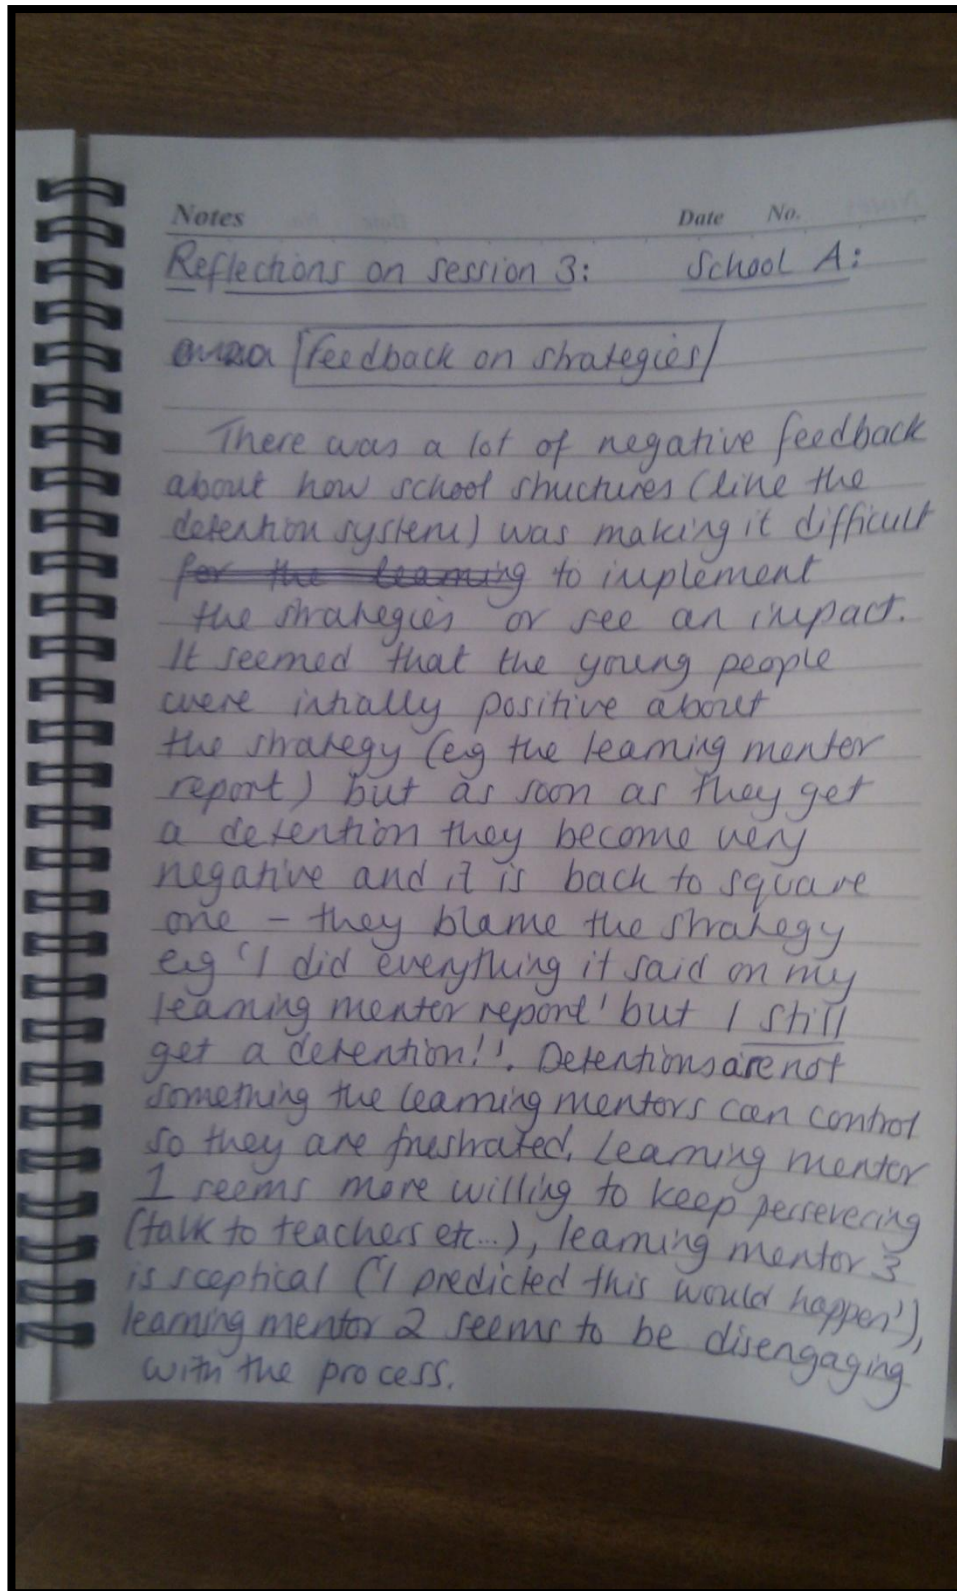 Notes Date No.
Reflections on session 3: School A:
feedback on strategies
There was a lot of negative feedback
about how school structures (like the
detention system) was making it difficult
for the learning to implement
the strategies or see an impact.
It seemed that the young people
were intially positive about
the strategy (eg the learning mentor
report) but as soon as they get
a detention they become very
negative and it is back to square
one – they blame the strategy
eg 'I did everything it said on my
learning mentor report' but I still
get a detention!!'. Detentions are not
something the learning mentors can control
so they are frustrated. Learning mentor
1 seems more willing to keep persevering
(talk to teachers etc...), learning mentor 3
is sceptical ('I predicted this would happen'),
learning mentor 2 seems to be disengaging
with the process.